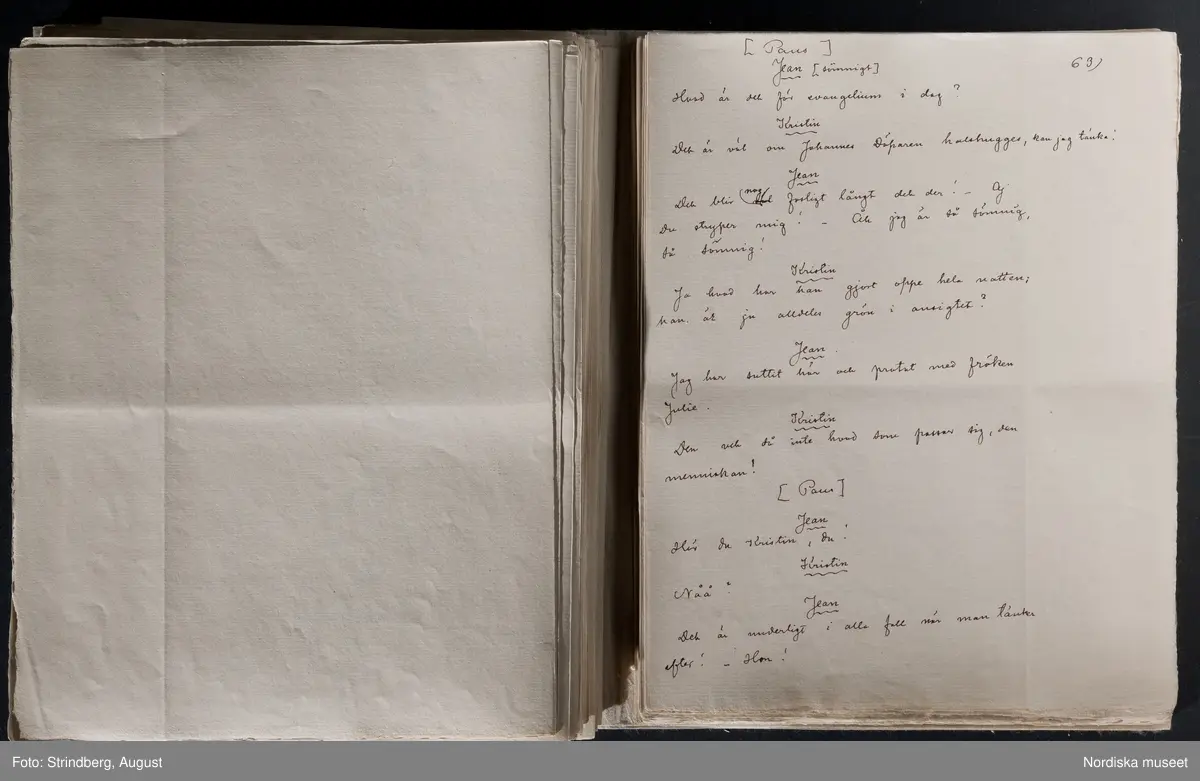 [Paus]
63)
Jean [sömnigt]
Hvad är det för evangelium i dag?
Kristin
Det är väl om Johannes Döparen halshugges, kan jag tänka!
Jean
Det blir nog fasligt långt det der! – Aj
Du stryper mig! – Ack jag är så sömnig,
så sömnig!
Kristin
Ja hvad har han gjort oppe hela natten;
han är ju alldeles grön i ansigtet?
Jean.
Jag har suttit här och pratat med fröken
Julie.
Kristin
Den vet då inte hvad som passar sig, den
menniskan!
[Paus]
Jean
Hör du Kristin, du!
Kristin
Nåå?
Jean
Det är underligt i alla fall när man tänker
efter! – Hon!
Foto: Strindberg, August
Nordiska museet